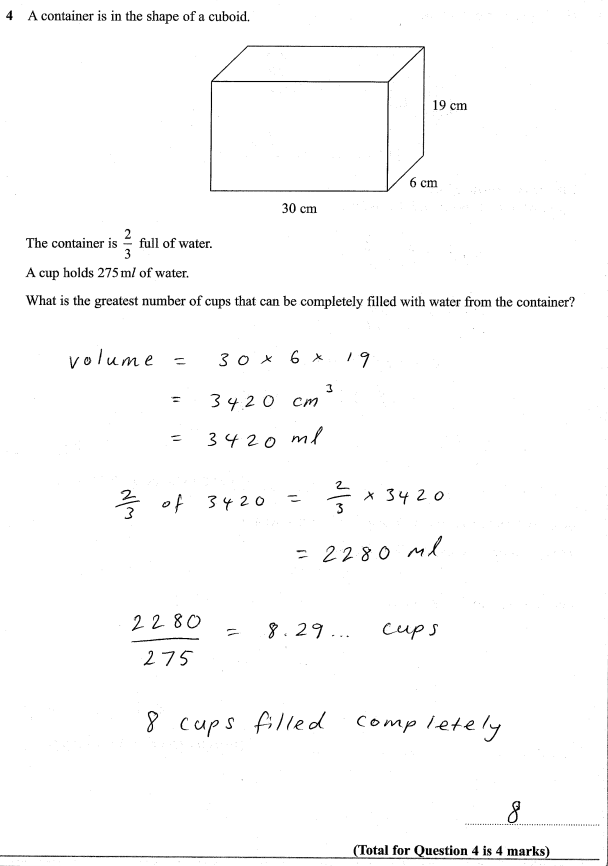 4 A container is in the shape of a cuboid.
19 cm
6 cm
30 cm
The container is 2/3 full of water.
A cup holds 275 ml of water.
What is the greatest number of cups that can be completely filled with water from the container?
volume = 30 × 6 × 19
= 3420 cm³
= 3420 ml
2/3 of 3420 = 2/3 × 3420
= 2280 ml
2280/275 = 8.29... cups
8 cups filled completely
8
(Total for Question 4 is 4 marks)